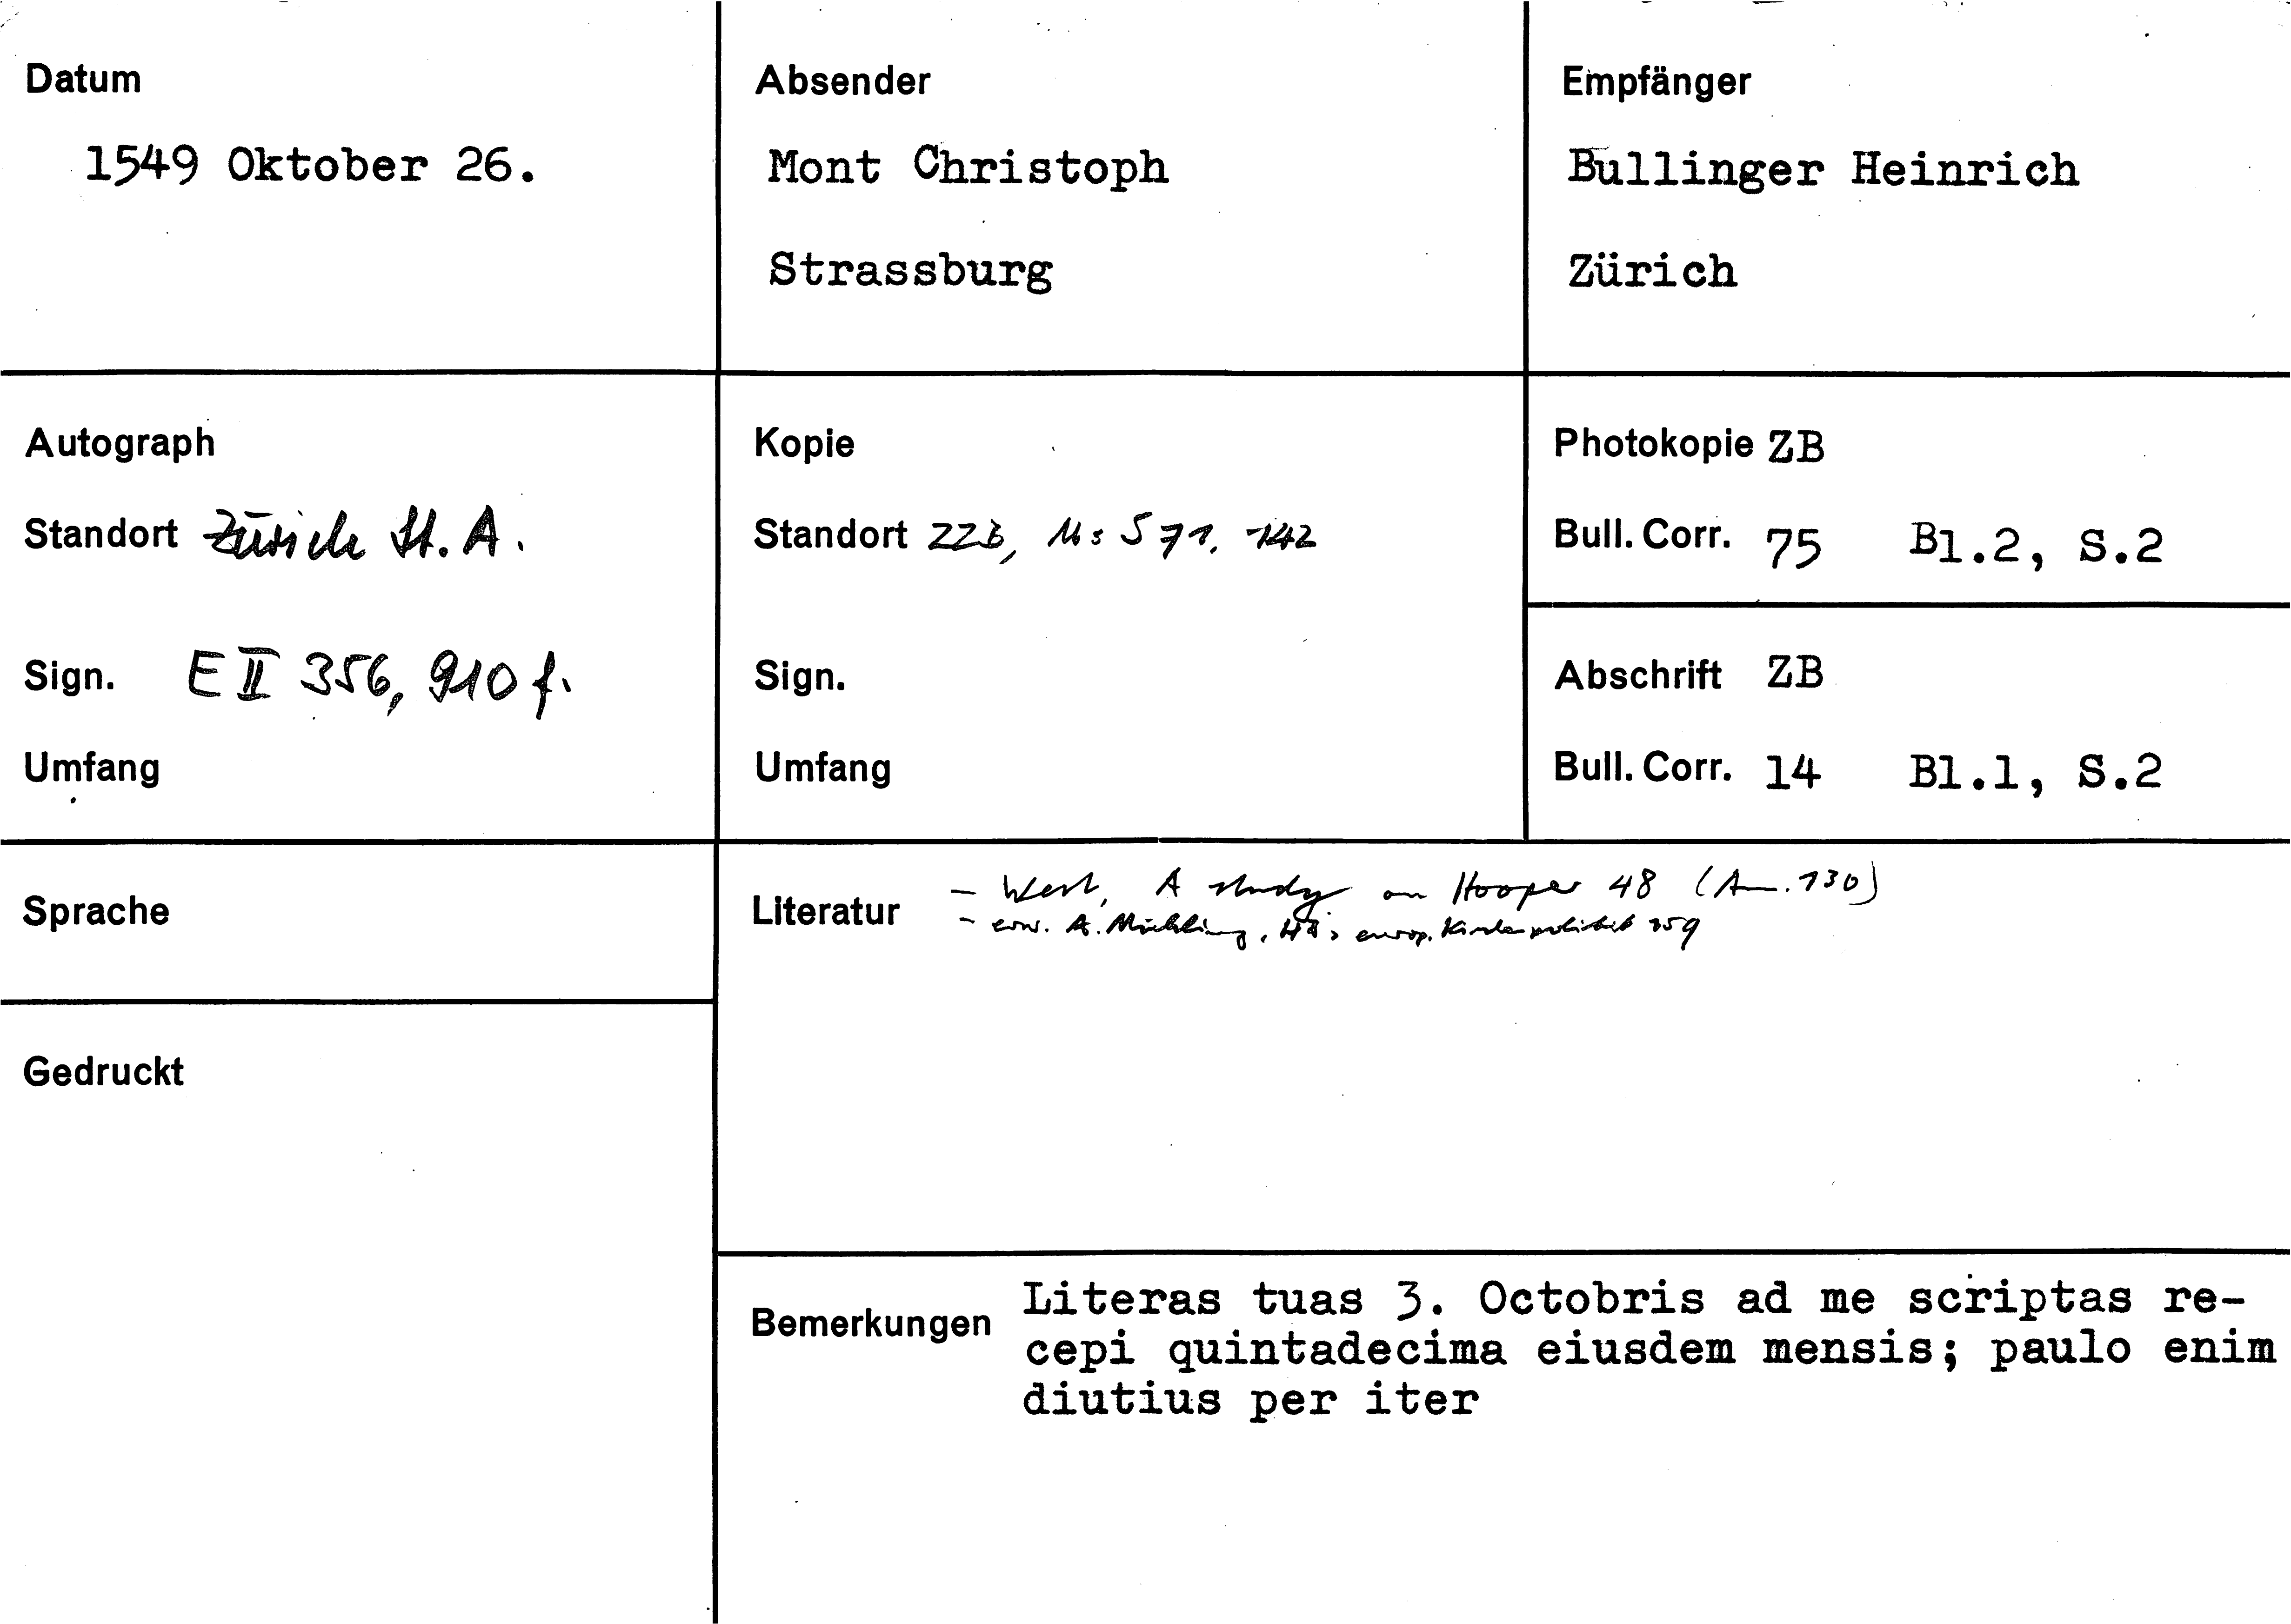 Datum
1549 Oktober 26.
Absender
Mont Christoph
Strassburg
Empfänger
Bullinger Heinrich
Zürich
Autograph
Standort Zürich St. A.
Sign. E II 356, 910 f.
Umfang
Kopie
Standort ZZB, Ms S 71, 142
Sign.
Umfang
Photokopie ZB
Bull. Corr. 75 Bl.2, S.2
Abschrift ZB
Bull. Corr. 14 Bl.1, S.2
Sprache
Literatur - West, A study on Hooper 48 (Am. 130)
- erw. A. Mühling, europ. Kirchenpolitik 259
Gedruckt
Bemerkungen Literas tuas 3. Octobris ad me scriptas re-
cepi quintadecima eiusdem mensis; paulo enim
diutius per iter